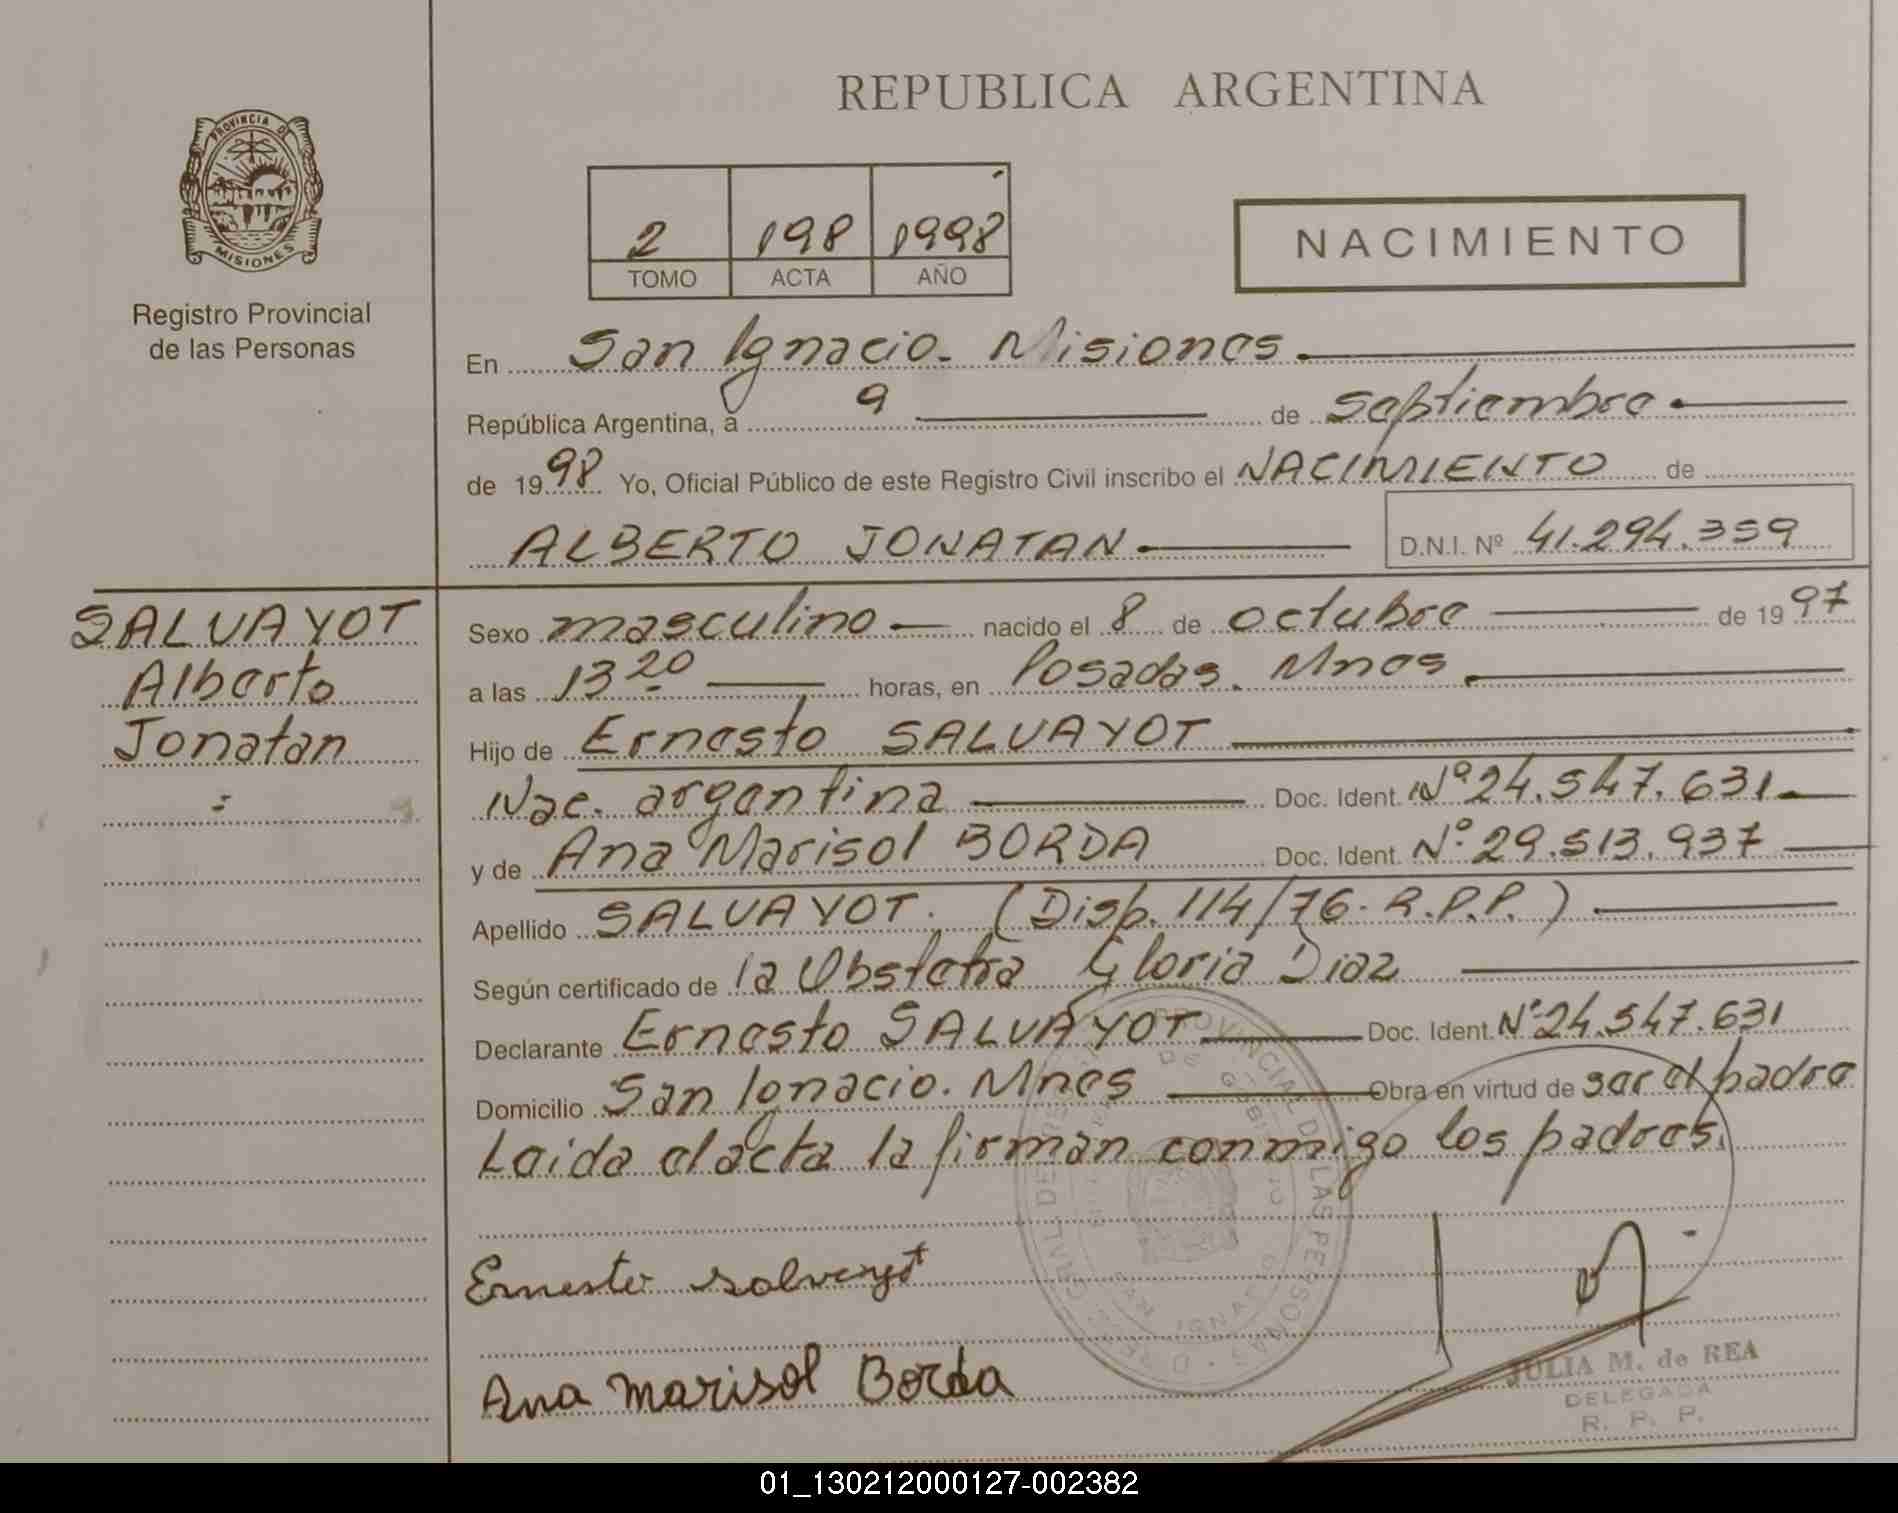 REPUBLICA ARGENTINA
PROVINCIA DE
MISIONES
Registro Provincial
de las Personas
2 198 1998
TOMO ACTA AÑO
NACIMIENTO
En San Ignacio. Misiones
República Argentina, a 9 de septiembre
de 1998 Yo, Oficial Público de este Registro Civil inscribo el NACIMIENTO de
ALBERTO JONATAN D.N.I. Nº 41.294.359
SALVAYOT
Alberto
Jonatan
Sexo masculino nacido el 8 de octubre de 1997
a las 13 20 horas, en Posadas. Mnes
Hijo de Ernesto SALVAYOT
Nac. argentina Doc. Ident. Nº 24.547.631
y de Ana Marisol BORDA Doc. Ident. Nº 29.513.937
Apellido SALVAYOT. (Disp. 114/76. R.P.P.)
Según certificado de la Obstetra Gloria Diaz
Declarante Ernesto SALVAYOT Doc. Ident. Nº 24.547.631
Domicilio San Ignacio. Mnes Obra en virtud de ser el padre
Leida el acta la firman conmigo los padres.
Ernesto Salvayot
Ana Marisol Borda
JULIA M. de REA
DELEGADA
R. P. P.
01_130212000127-002382